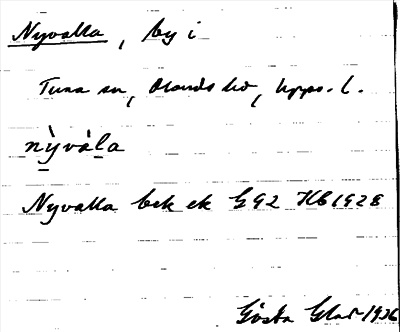 Nyvalla, by i
Tuna sn, Olands hd, Upps. l.
nỳvàla
Nyvalla bek ek G 92 HB 1928
Gösta 1936